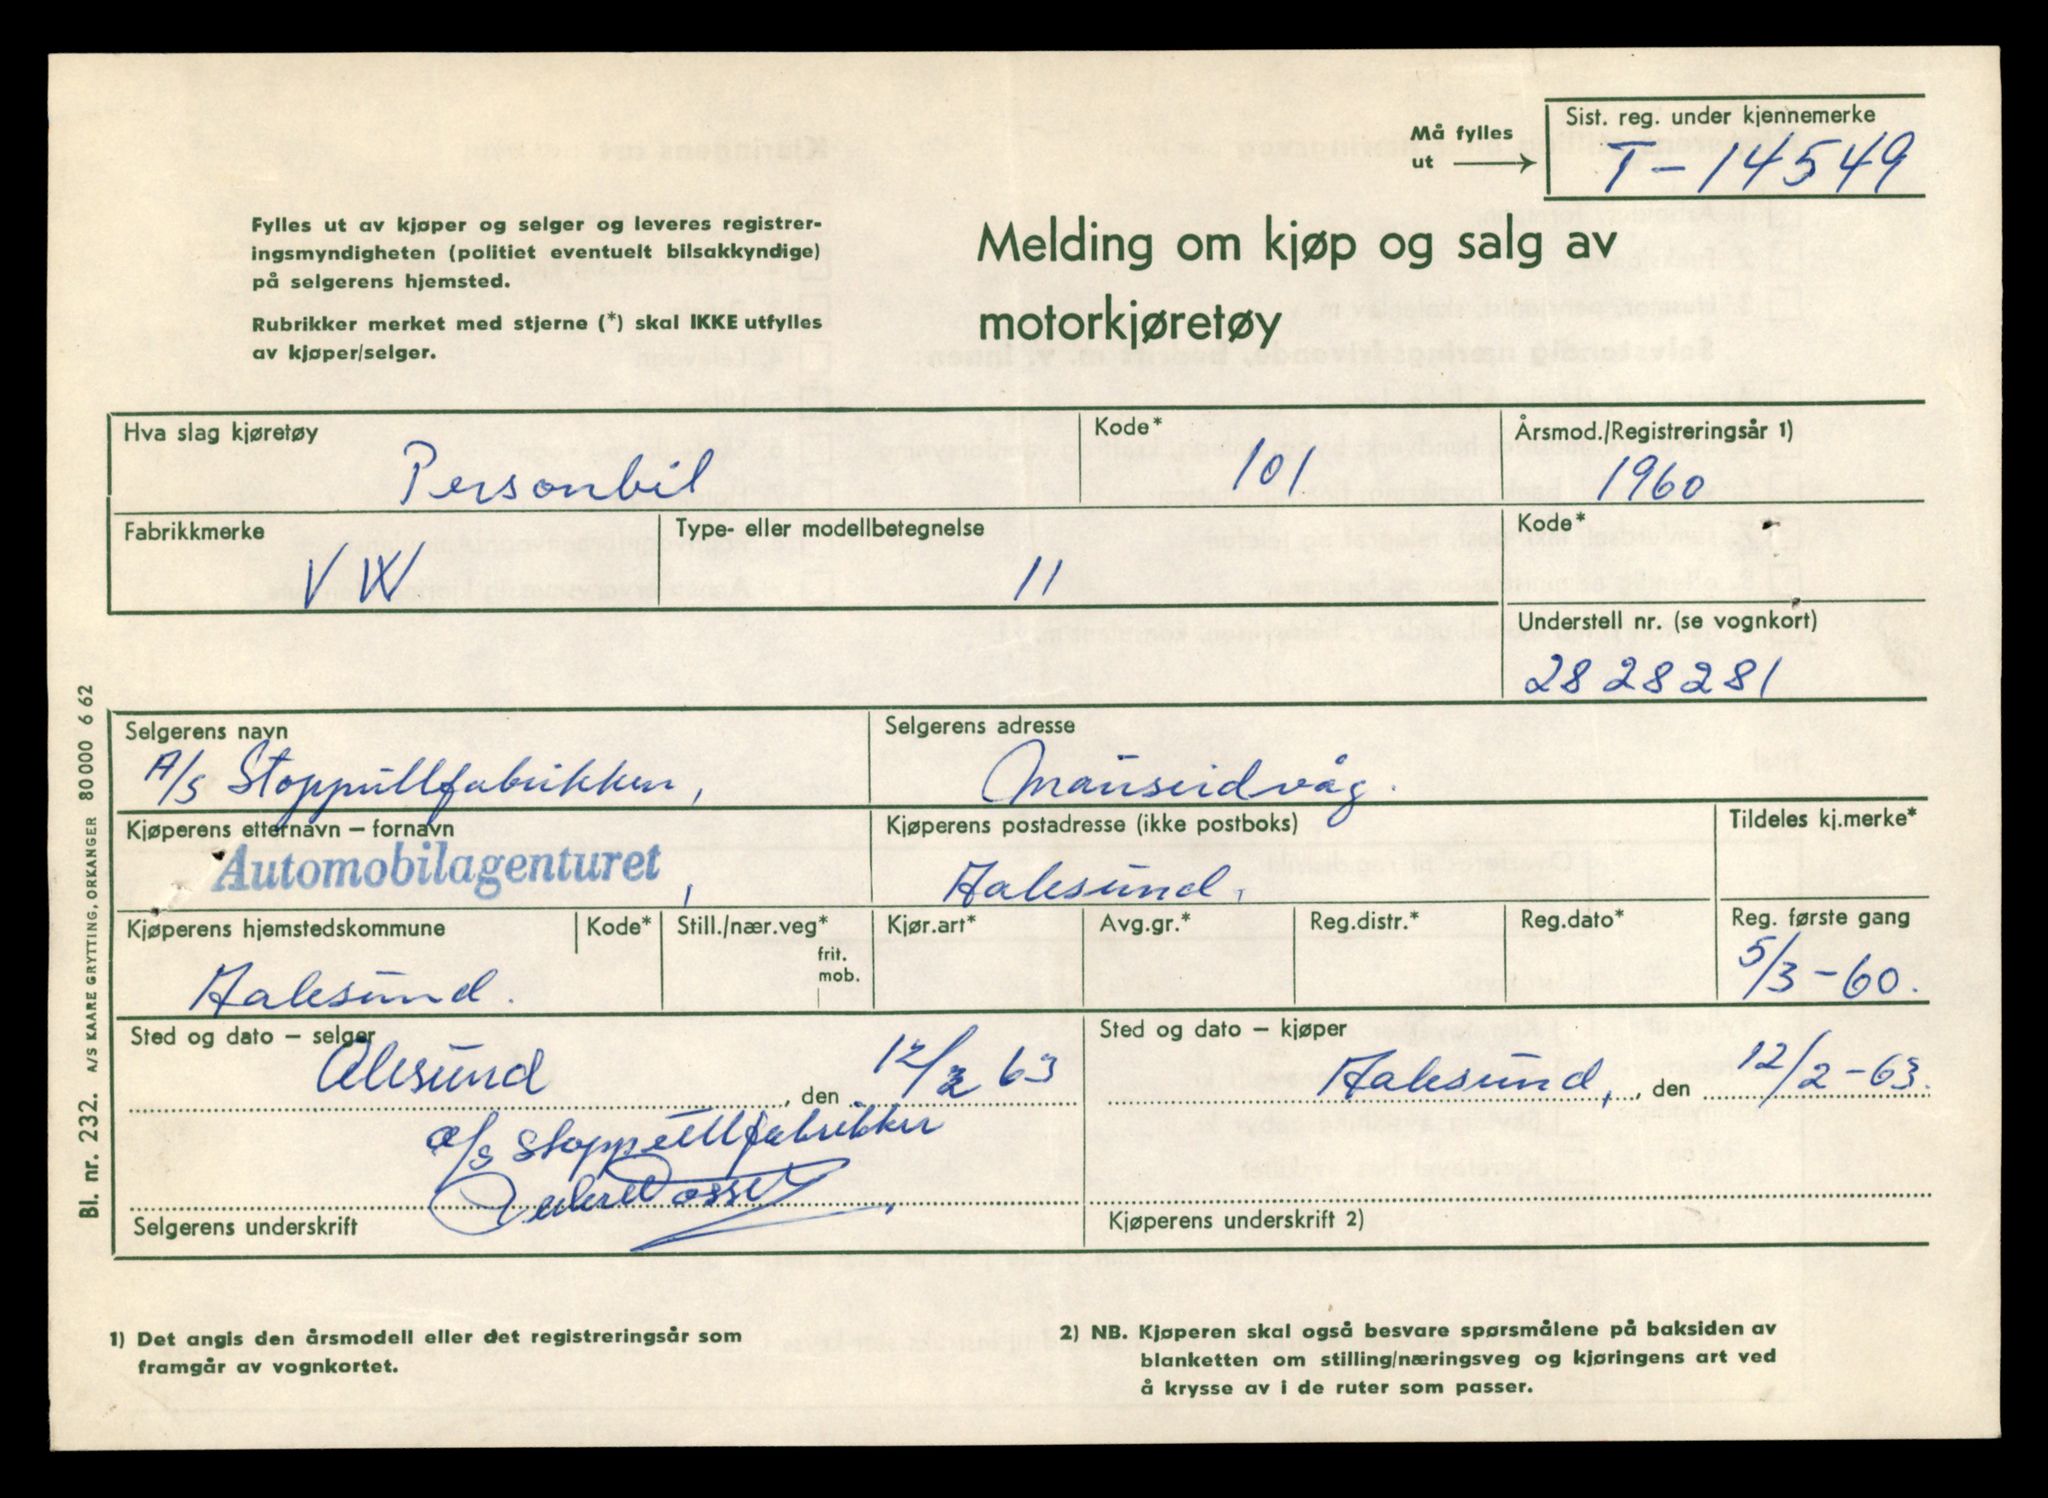 Må fylles
ut
Sist. reg. under kjennemerke
T-14549
Fylles ut av kjøper og selger og leveres registrer-
ingsmyndigheten (politiet eventuelt bilsakkyndige)
på selgerens hjemsted.
Rubrikker merket med stjerne (*) skal IKKE utfylles
av kjøper/selger.
Melding om kjøp og salg av
motorkjøretøy
Hva slag kjøretøy
Personbil
Kode*
101
Årsmod./Registreringsår 1)
1960
Fabrikkmerke
VW
Type- eller modellbetegnelse
11
Kode*
Understell nr. (se vognkort)
2828281
Selgerens navn
A/S Stoppullfabrikken,
Selgerens adresse
Mauseidvåg.
Kjøperens etternavn – fornavn
Automobilagenturet,
Kjøperens postadresse (ikke postboks)
Aalesund.
Tildeles kj.merke*
Kjøperens hjemstedskommune
Aalesund.
Kode*
Still./nær.veg*
frit.
mob.
Kjør.art*
Avg.gr.*
Reg.distr.*
Reg.dato*
Reg. første gang
5/3-60.
Sted og dato – selger
Ålesund, den 12/2 63
Sted og dato – kjøper
Aalesund, den 12/2-63.
a/s Stoppullfabrikken
Selgerens underskrift
Kjøperens underskrift 2)
1) Det angis den årsmodell eller det registreringsår som
framgår av vognkortet.
2) NB. Kjøperen skal også besvare spørsmålene på baksiden av
blanketten om stilling/næringsveg og kjøringens art ved
å krysse av i de ruter som passer.
Bl. nr. 232. A/S KAARE GRYTTING, ORKANGER 80 000 6 62